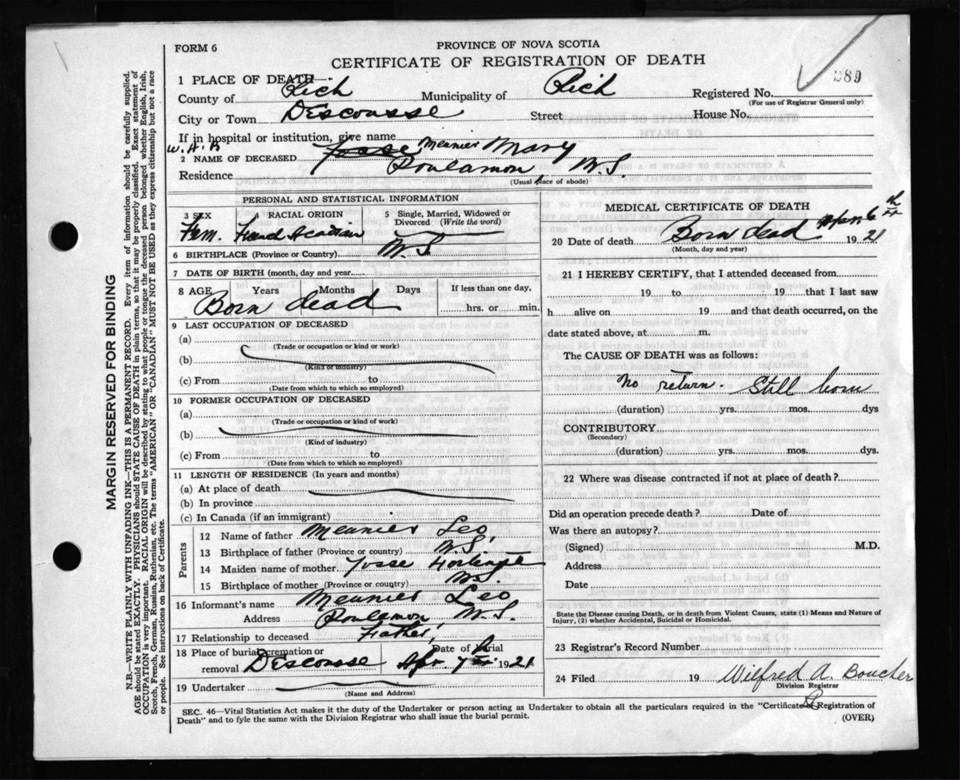 FORM 6
PROVINCE OF NOVA SCOTIA
CERTIFICATE OF REGISTRATION OF DEATH
389
1 PLACE OF DEATH—
County of Rich Municipality of Rich Registered No.
(For use of Registrar General only)
City or Town DEscousse Street House No.
If in hospital or institution, give name
W. A. B
2 NAME OF DECEASED Meunier Mary
Residence Poulamon, N.S.
(Usual place of abode)
PERSONAL AND STATISTICAL INFORMATION
3 SEX RACIAL ORIGIN 5 Single, Married, Widowed or Divorced (Write the word)
Fem. French Acadian
6 BIRTHPLACE (Province or Country) N.S.
7 DATE OF BIRTH (month, day and year)
8 AGE Years Months Days If less than one day,
Born dead hrs. or min.
9 LAST OCCUPATION OF DECEASED
(a)
(Trade or occupation or kind or work)
(b)
(Kind of industry)
(c) From to
(Date from which to which so employed)
10 FORMER OCCUPATION OF DECEASED
(a)
(Trade or occupation or kind of work)
(b)
(Kind of industry)
(c) From to
(Date from which to which so employed)
11 LENGTH OF RESIDENCE (In years and months)
(a) At place of death
(b) In province
(c) In Canada (if an immigrant)
Parents
12 Name of father Meunier Leo,
13 Birthplace of father (Province or country) N.S.
14 Maiden name of mother
15 Birthplace of mother (Province or country) N.S.
16 Informant's name Meunier Leo
Address Poulamon, N.S.
17 Relationship to deceased Father,
18 Place of burial, cremation or removal DEscousse Date of burial Apr. 7th 1921
19 Undertaker
(Name and Address)
MEDICAL CERTIFICATE OF DEATH
20 Date of death Born dead Apr. 6th 1921
(Month, day and year)
21 I HEREBY CERTIFY, that I attended deceased from
19 to 19 that I last saw
h alive on 19 and that death occurred, on the
date stated above, at m.
The CAUSE OF DEATH was as follows:
No return. Still born
(duration) yrs. mos. dys
CONTRIBUTORY
(Secondary)
(duration) yrs. mos. dys.
22 Where was disease contracted if not at place of death?
Did an operation precede death? Date of
Was there an autopsy?
(Signed) M.D.
Address
Date
State the Disease causing Death, or in death from Violent Causes, state (1) Means and Nature of
Injury, (2) whether Accidental, Suicidal or Homicidal.
23 Registrar's Record Number
24 Filed 19 Wilfred A. Boucher
Division Registrar
SEC. 46—Vital Statistics Act makes it the duty of the Undertaker or person acting as Undertaker to obtain all the particulars required in the "Certificate of Registration of
Death" and to fyle the same with the Division Registrar who shall issue the burial permit.
(OVER)
MARGIN RESERVED FOR BINDING
N.B.—WRITE PLAINLY WITH UNFADING INK—THIS IS A PERMANENT RECORD. Every item of information should be carefully supplied.
AGE should be stated EXACTLY. PHYSICIANS should STATE CAUSE OF DEATH in plain terms, so that it may be properly classified. Exact statement of
OCCUPATION is very important. RACIAL ORIGIN will be described by stating to what people or tongue the deceased person belonged whether English, Irish,
Scotch, French, German, Russian, Ruthenian, etc. The terms "AMERICAN" OR "CANADIAN" MUST NOT BE USED as they express citizenship but not a race
or people. See instructions on back of Certificate.